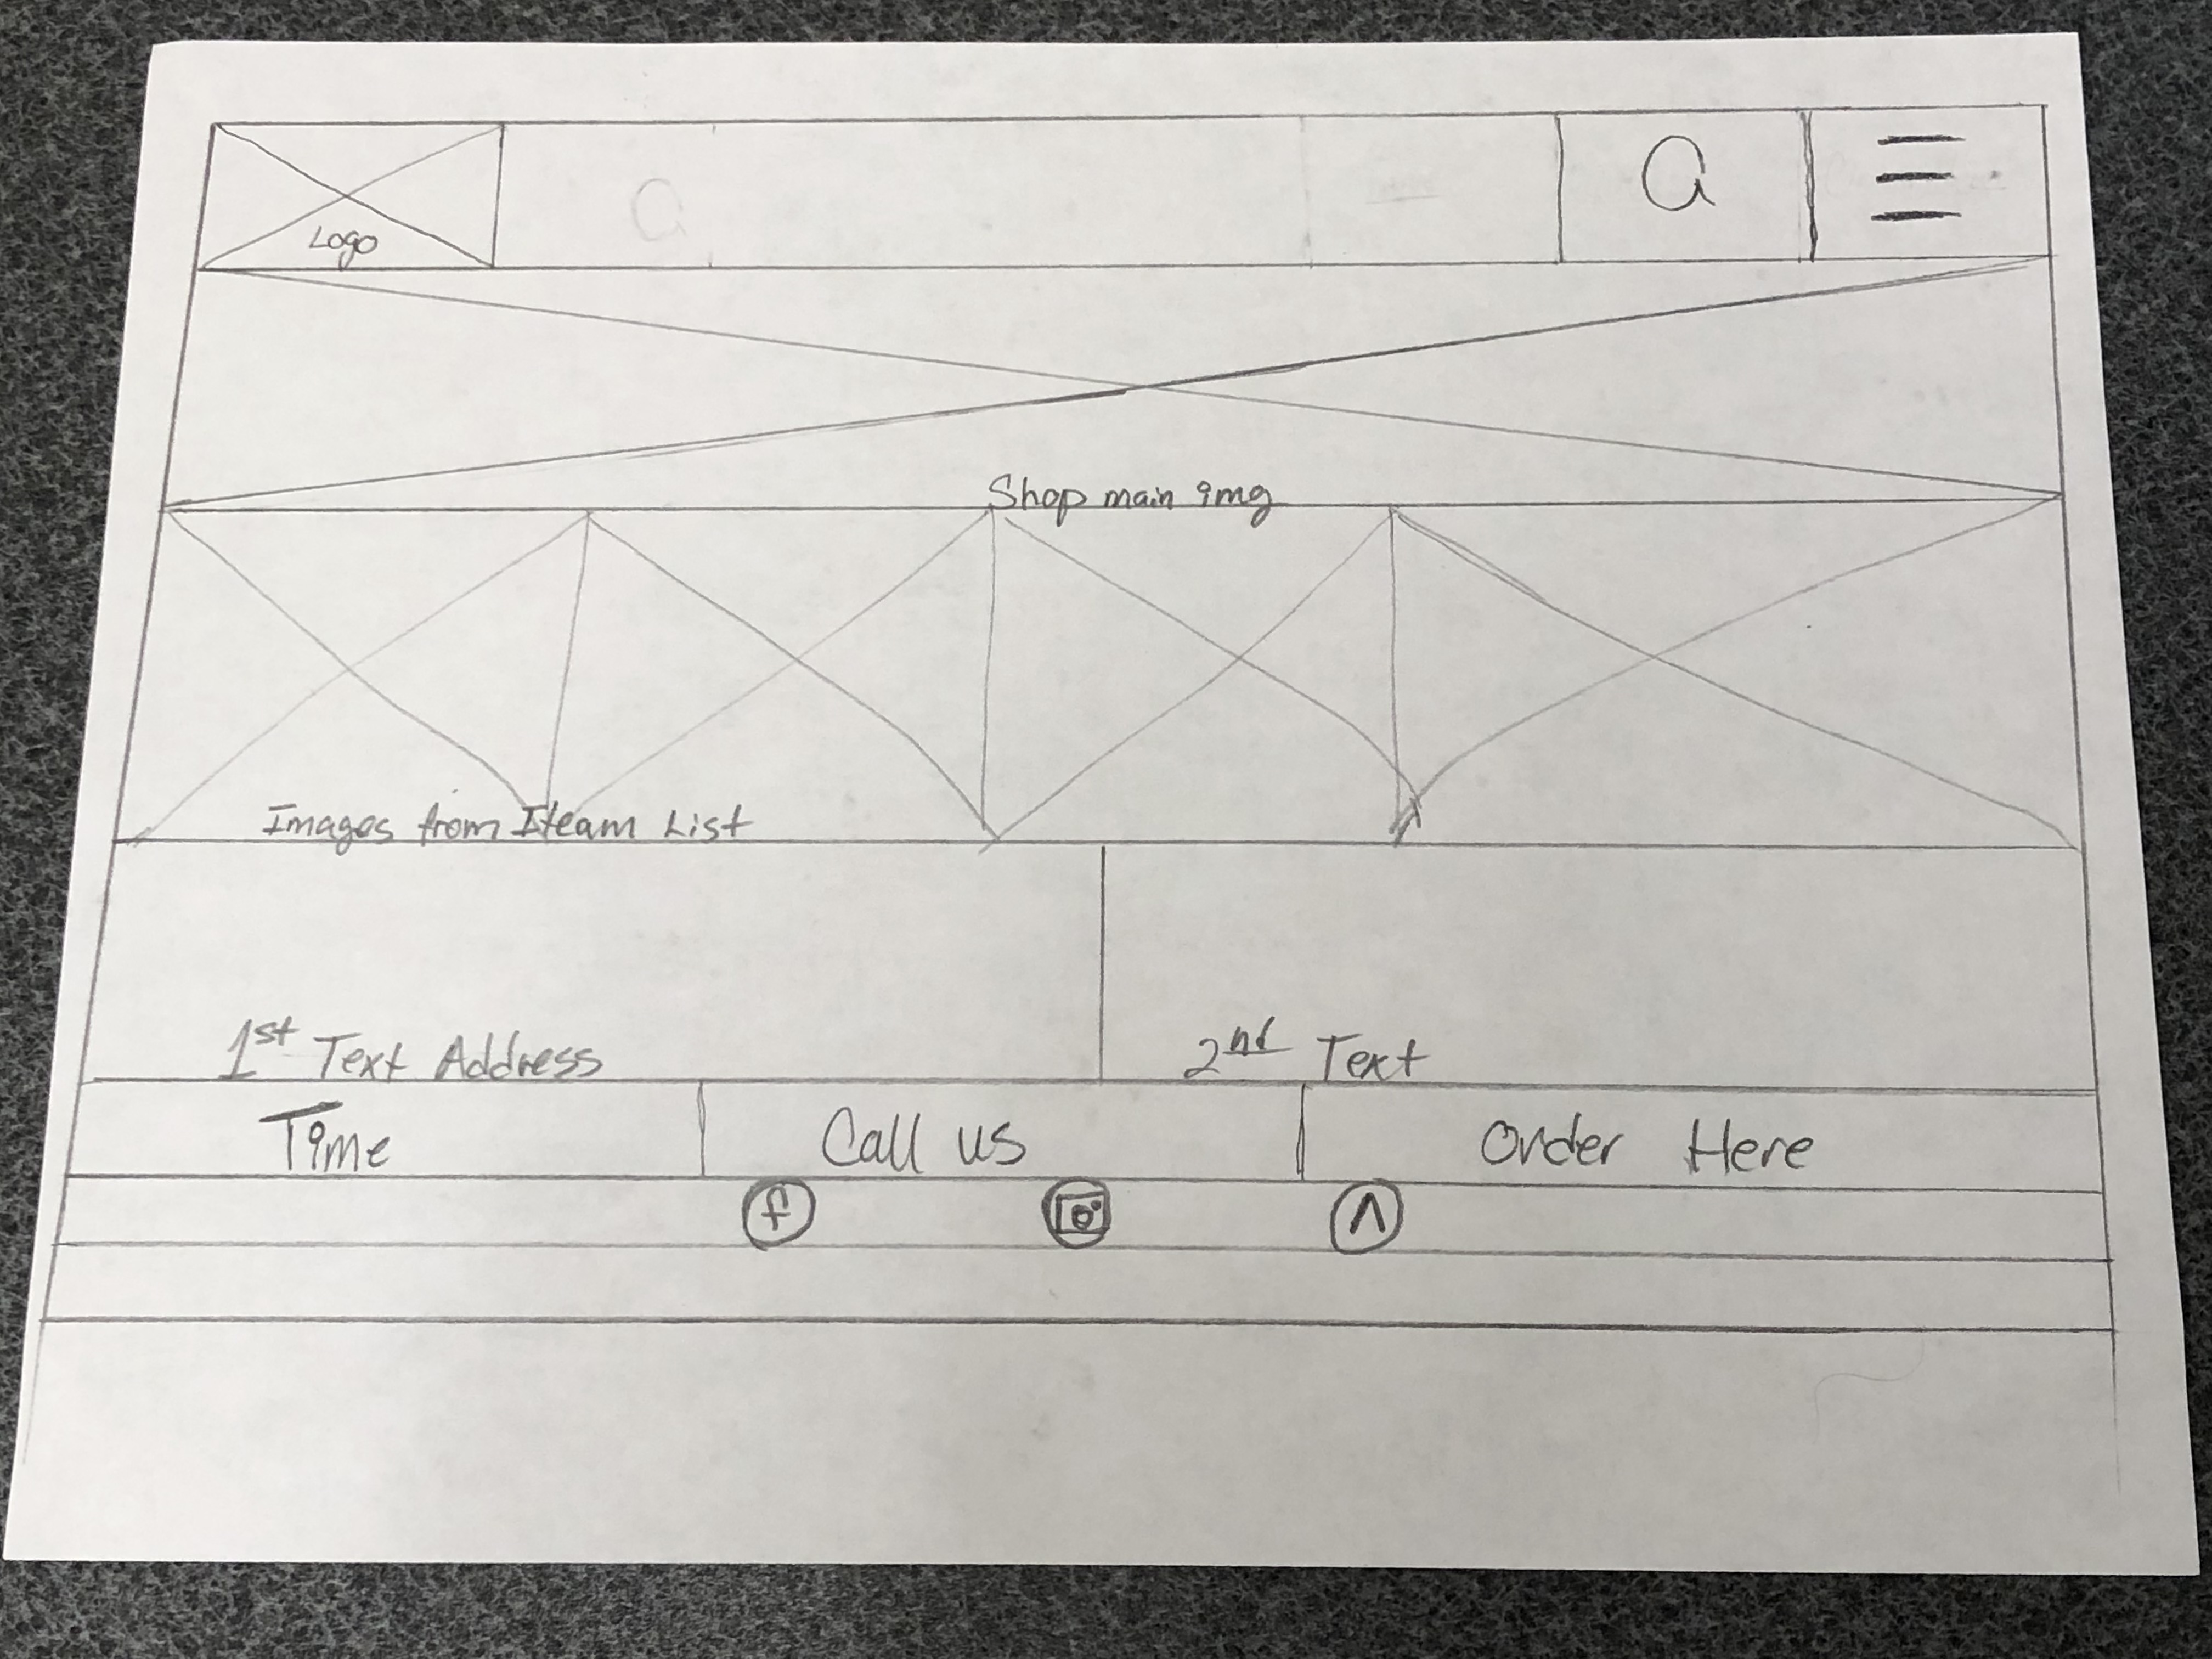 Logo
Shop main img
Images from Iteam List
1st Text Address
2nd Text
Time
Call us
Order Here
f